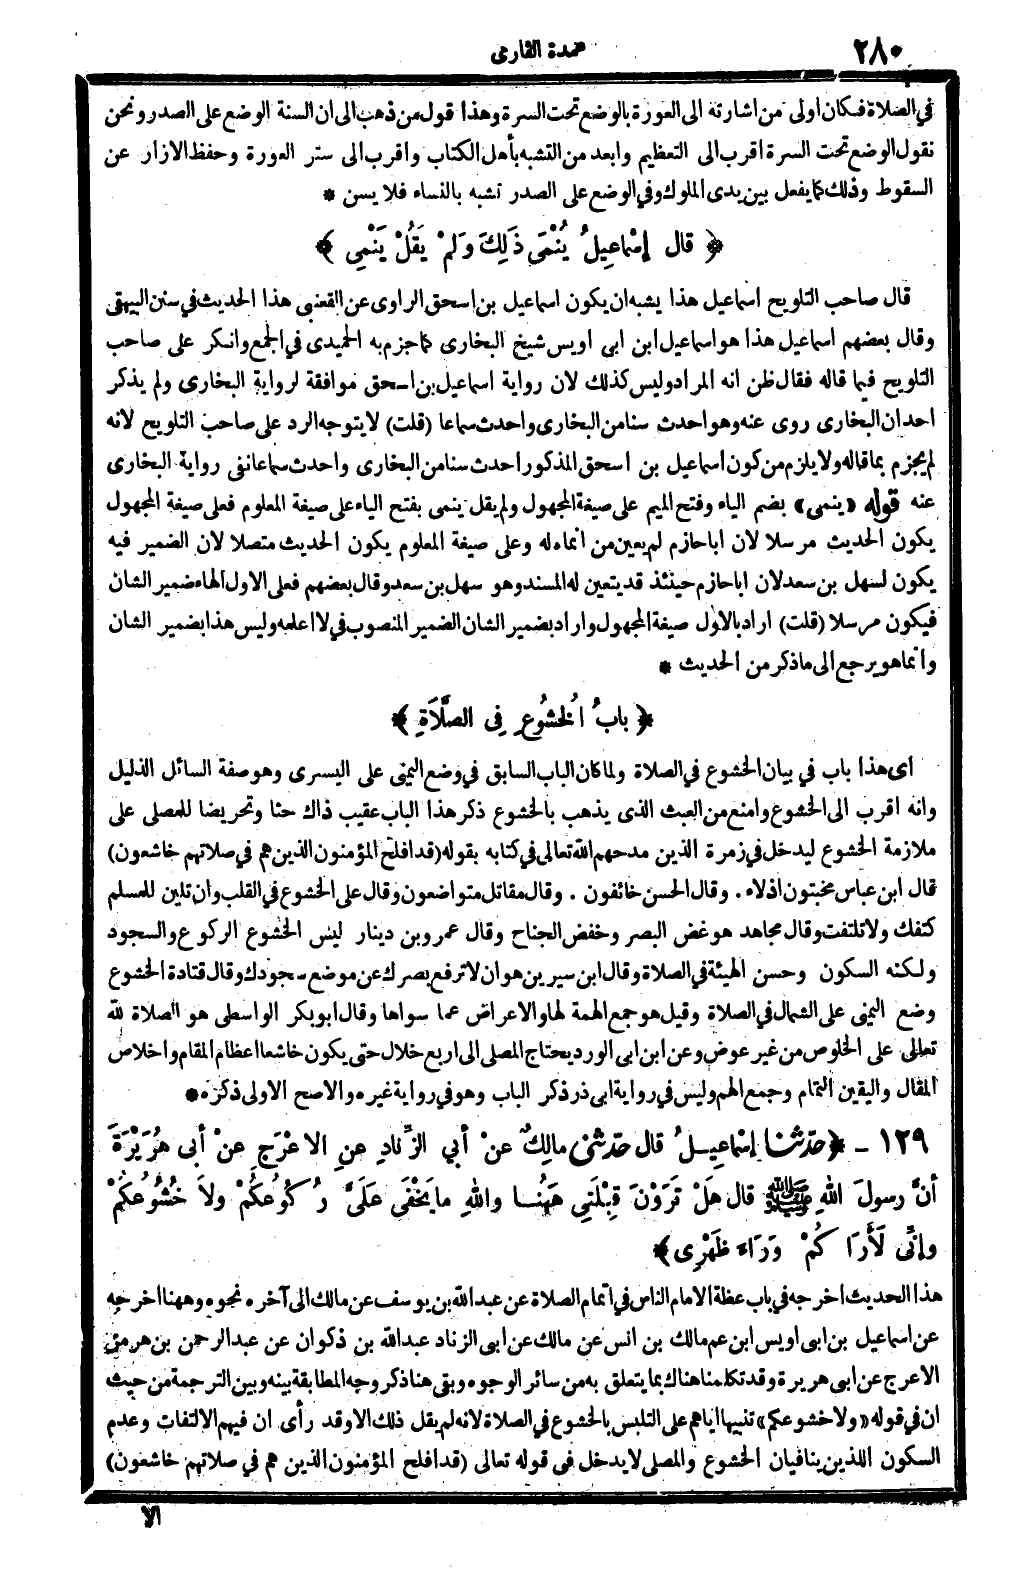 ٢٨٠
عمدة القارى
في الصلاة فكان أولى من اشارته الى العورة بالوضع تحت السرة وهذا قول من ذهب الى ان السنة الوضع على الصدر ونحن
نقول الوضع تحت السرة اقرب الى التعظيم وابعد من التشبه بأهل الكتاب واقرب الى ستر العورة وحفظ الازار عن
السقوط وذلك كما يفعل بين يدى الملوك وفي الوضع على الصدر تشبه بالنساء فلا يسن *
﴿ قال إسْماعِيلُ يُنْمَى ذَلِكَ وَلَمْ يَقُلْ يَنْمِي ﴾
قال صاحب التلويح اسماعيل هذا يشبه ان يكون اسماعيل بن اسحق الراوى عن القعنبى هذا الحديث في سنن البيهقى
وقال بعضهم اسماعيل هذا هو اسماعيل ابن ابى اويس شيخ البخارى كما جزم به الحميدى في الجمع وانكر على صاحب
التلويح فيما قاله فقال ظن انه المراد وليس كذلك لان رواية اسماعيل بن اسحق موافقة لرواية البخارى ولم يذكر
احد ان البخارى روى عنه وهو احدث سنا من البخارى واحدث سماعا (قلت) لا يتوجه الرد على صاحب التلويح لانه
لم يجزم بما قاله ولا يلزم من كون اسماعيل بن اسحق المذكور احدث سنا من البخارى واحدث سماعا نفى رواية البخارى
عنه قوله «ينمى» بضم الياء وفتح الميم على صيغة المجهول ولم يقل ينمى بفتح الياء على صيغة المعلوم فعلى صيغة المجهول
يكون الحديث مرسلا لان ابا حازم لم يعين من انماه له وعلى صيغة المعلوم يكون الحديث متصلا لان الضمير فيه
يكون لسهل بن سعد لان ابا حازم حينئذ قد يتعين له المسند وهو سهل بن سعد وقال بعضهم فعلى الاول الهاء ضمير الشان
فيكون مرسلا (قلت) اراد بالاول صيغة المجهول واراد بضمير الشان الضمير المنصوب في لا اعلمه وليس هذا بضمير الشان
وانما هو يرجع الى ما ذكر من الحديث *
﴿ بابُ الخُشُوعِ فِى الصَّلَاةِ ﴾
اى هذا باب في بيان الخشوع في الصلاة ولما كان الباب السابق في وضع اليمنى على اليسرى وهو صفة السائل الذليل
وانه اقرب الى الخشوع وامنع من العبث الذى يذهب بالخشوع ذكر هذا الباب عقيب ذاك حثا وتحريضا للمصلى على
ملازمة الخشوع ليدخل في زمرة الذين مدحهم الله تعالى في كتابه بقوله (قد افلح المؤمنون الذين هم في صلاتهم خاشعون)
قال ابن عباس مخبتون اذلاء . وقال الحسن خائفون . وقال مقاتل متواضعون وقال على الخشوع في القلب وان تلين للمسلم
كتفك ولا تلتفت وقال مجاهد هو غض البصر وخفض الجناح وقال عمرو بن دينار ليس الخشوع الركوع والسجود
ولكنه السكون وحسن الهيئة في الصلاة وقال ابن سيرين هو ان لا ترفع بصرك عن موضع سجودك وقال قتادة الخشوع
وضع اليمنى على الشمال في الصلاة وقيل هو جمع الهمة لها والاعراض عما سواها وقال ابو بكر الواسطى هو الصلاة لله
تعالى على الخلوص من غير عوض وعن ابن ابى الورد يحتاج المصلى الى اربع خلال حتى يكون خاشعا اعظام المقام واخلاص
المقال واليقين التمام وجمع الهم وليس في رواية ابى ذر ذكر الباب وهو في رواية غيره والاصح الاولى ذكره *
١٢٩ - ﴿ حدّثنا إسْماعِيلُ قال حدّثنى مالِكٌ عنْ أبي الزِّنادِ عنِ الاعْرَجِ عنْ أبى هُرَيْرَةَ
أنَّ رسولَ اللهِ ﷺ قال هَلْ تَرَوْنَ قِبْلَتِي هَهُنا واللهِ ما يَخْفَى عَلَىَّ رُكُوعُكُمْ ولاَ خُشُوعُكُمْ
وإنِّى لَأَرَاكُمْ وَرَاءَ ظَهْرِى ﴾
هذا الحديث اخرجه في باب عظة الامام الناس في اتمام الصلاة عن عبد الله بن يوسف عن مالك الى آخره نحوه وههنا اخرجه
عن اسماعيل بن ابى اويس ابن عم مالك بن انس عن مالك عن ابى الزناد عبد الله بن ذكوان عن عبد الرحمن بن هرمز
الاعرج عن ابى هريرة وقد تكلمنا هناك بما يتعلق به من سائر الوجوه وبقى هنا ذكر وجه المطابقة بينه وبين الترجمة من حيث
ان في قوله «ولا خشوعكم» تنبيها اياهم على التلبس بالخشوع في الصلاة لانه لم يقل ذلك الا وقد رأى ان فيهم الالتفات وعدم
السكون اللذين ينافيان الخشوع والمصلى لا يدخل فى قوله تعالى (قد افلح المؤمنون الذين هم في صلاتهم خاشعون)
الا